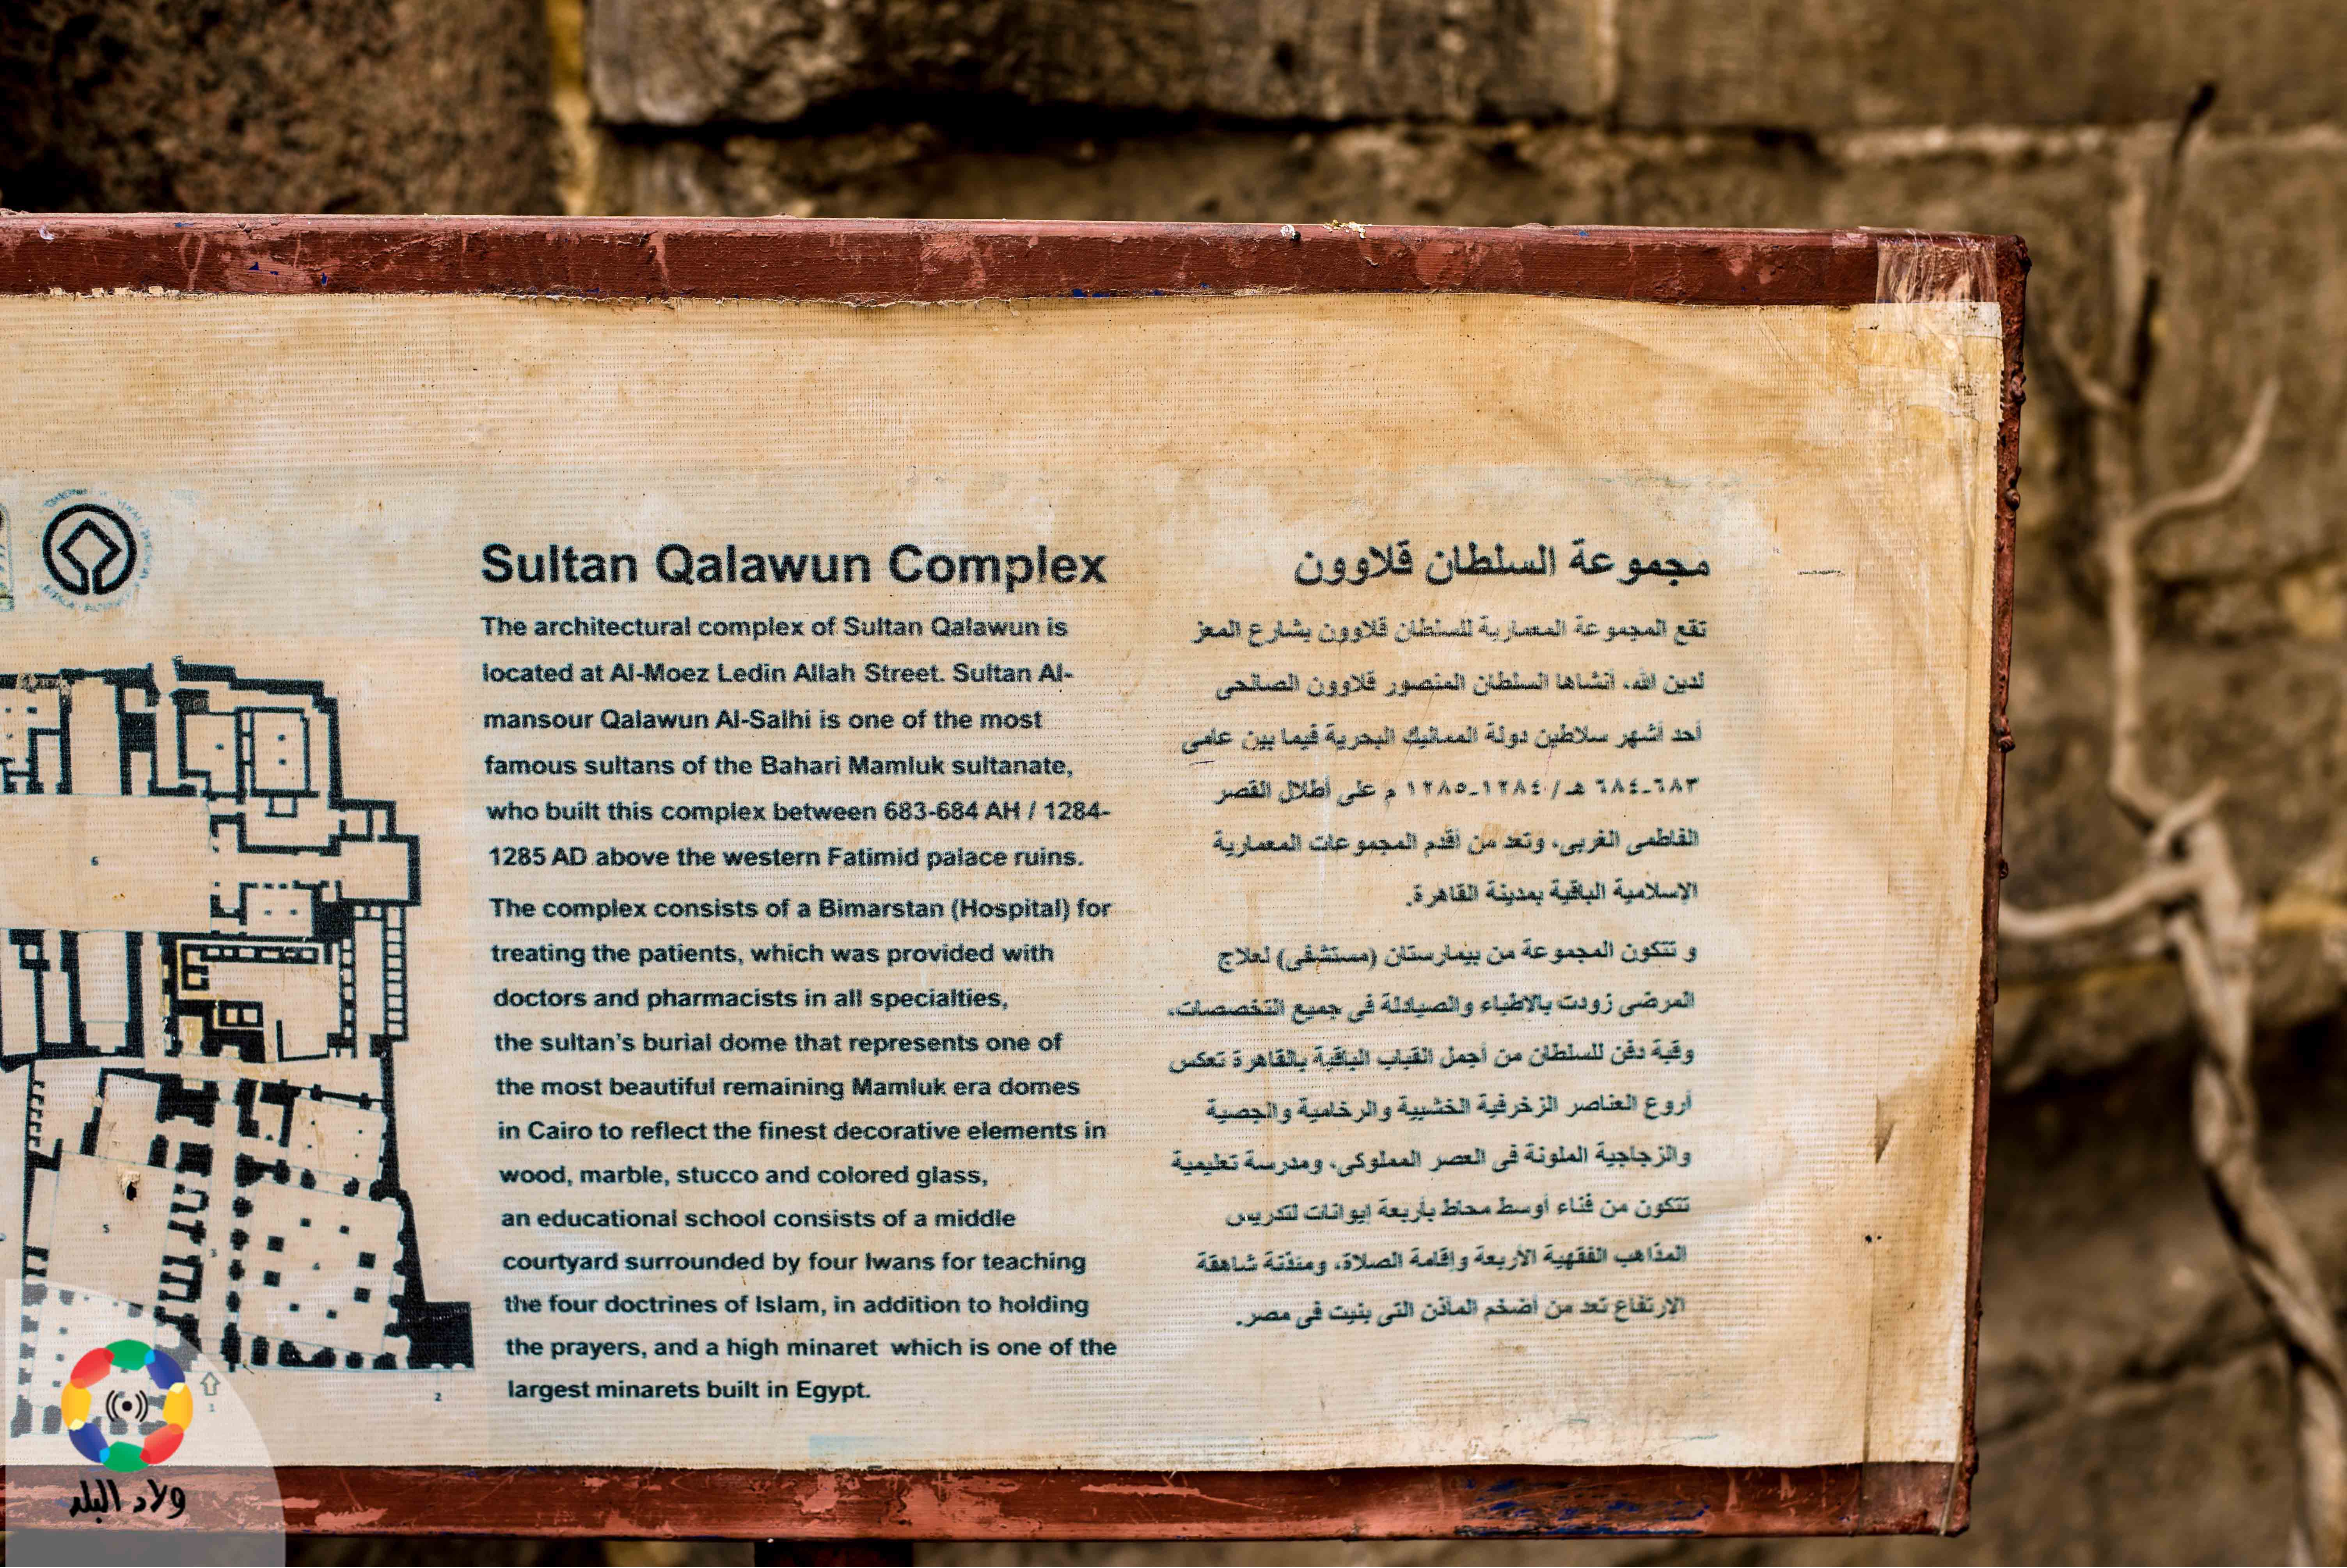 Sultan Qalawun Complex
The architectural complex of Sultan Qalawun is
located at Al-Moez Ledin Allah Street. Sultan Al-
mansour Qalawun Al-Salhi is one of the most
famous sultans of the Bahari Mamluk sultanate,
who built this complex between 683-684 AH / 1284-
1285 AD above the western Fatimid palace ruins.
The complex consists of a Bimarstan (Hospital) for
treating the patients, which was provided with
doctors and pharmacists in all specialties,
the sultan's burial dome that represents one of
the most beautiful remaining Mamluk era domes
in Cairo to reflect the finest decorative elements in
wood, marble, stucco and colored glass,
an educational school consists of a middle
courtyard surrounded by four Iwans for teaching
the four doctrines of Islam, in addition to holding
the prayers, and a high minaret which is one of the
largest minarets built in Egypt.
مجموعة السلطان قلاوون
تقع المجموعة المعمارية للسلطان قلاوون بشارع المعز
لدين الله، أنشاها السلطان المنصور قلاوون الصالحى
أحد أشهر سلاطين دولة المماليك البحرية فيما بين عامى
٦٨٣-٦٨٤ هـ/ ١٢٨٤-١٢٨٥ م على أطلال القصر
الفاطمى الغربى، وتعد من أقدم المجموعات المعمارية
الإسلامية الباقية بمدينة القاهرة.
و تتكون المجموعة من بيمارستان (مستشفى) لعلاج
المرضى زودت بالاطباء والصيادلة فى جميع التخصصات،
وقبة دفن للسلطان من أجمل القباب الباقية بالقاهرة تعكس
أروع العناصر الزخرفية الخشبية والرخامية والجصية
والزجاجية الملونة فى العصر المملوكى، ومدرسة تعليمية
تتكون من فناء أوسط محاط بأربعة إيوانات لتدريس
المذاهب الفقهية الأربعة وإقامة الصلاة، ومئذنة شاهقة
الإرتفاع تعد من أضخم المآذن التى بنيت فى مصر.
ولاد البلد